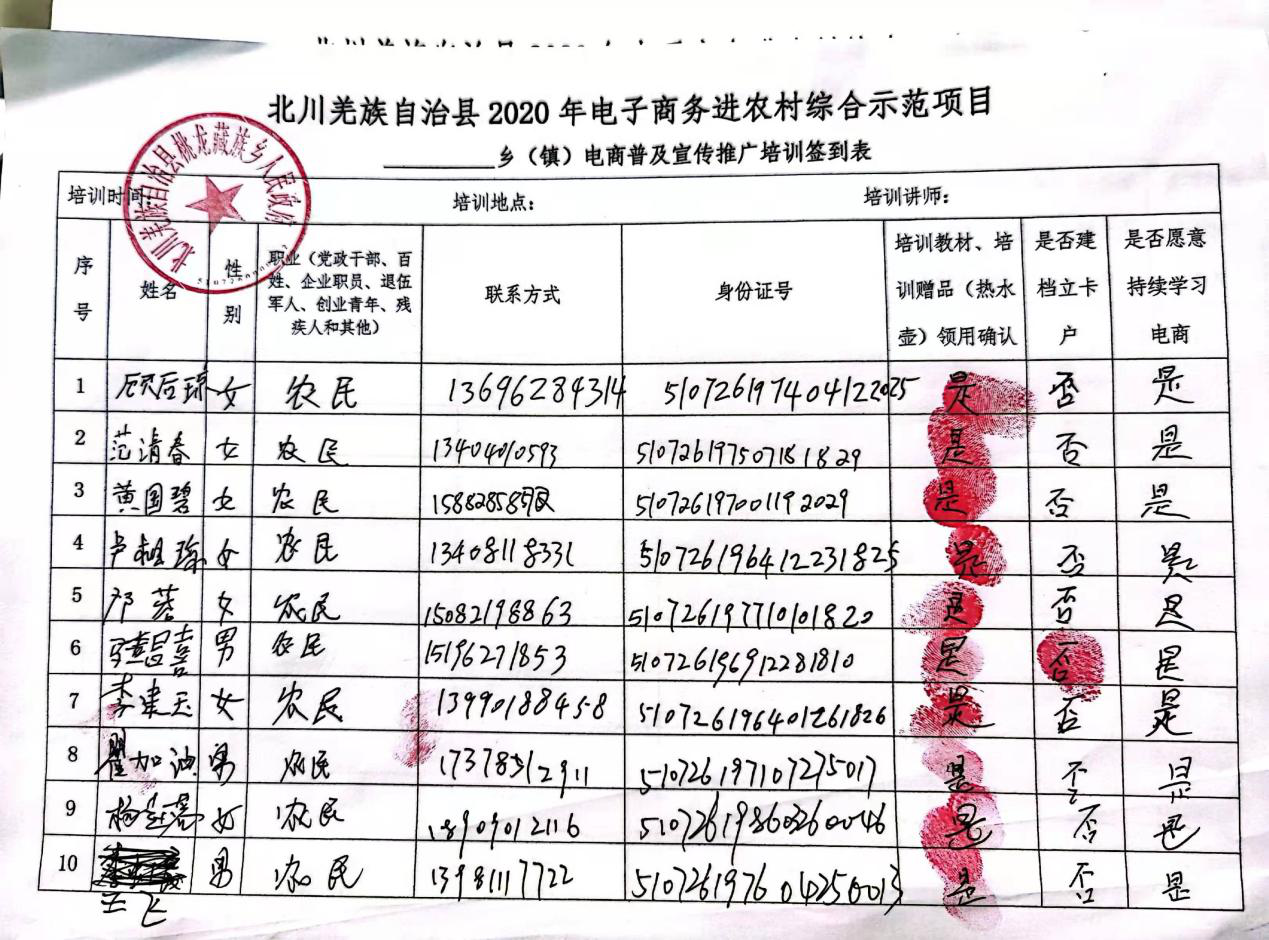 北川羌族自治县 2020 年电子商务进农村综合示范项目
乡（镇）电商普及宣传推广培训签到表
北川羌族自治县桃龙藏族乡人民政府
培训时间： 培训地点： 培训讲师：
序号 姓名 性别 职业（党政干部、百姓、企业职员、退伍军人、创业青年、残疾人和其他） 联系方式 身份证号 培训教材、培训赠品（热水壶）领用确认 是否建档立卡户 是否愿意持续学习电商
1 顾后琼 女 农民 13696284314 510726197404122025 是 否 是
2 范清春 女 农民 13404010593 510726197507181829 是 否 是
3 黄国碧 女 农民 是 否 是
4 女 农民 13408118331 510726196412231825 是 否 是
5 邓蓉 女 农民 15082198863 510726197710101820 是 否 是
6 男 农民 15196271853 510726196912281810 是 否 是
7 李建玉 女 农民 13990188458 510726196401261826 是 否 是
8 翟加油 男 农民 17378512911 510726197107275017 是 否 是
9 女 农民 18909012116 510726198603260046 是 否 是
10 男 农民 13981117722 510726197604250013 是 否 是
王飞